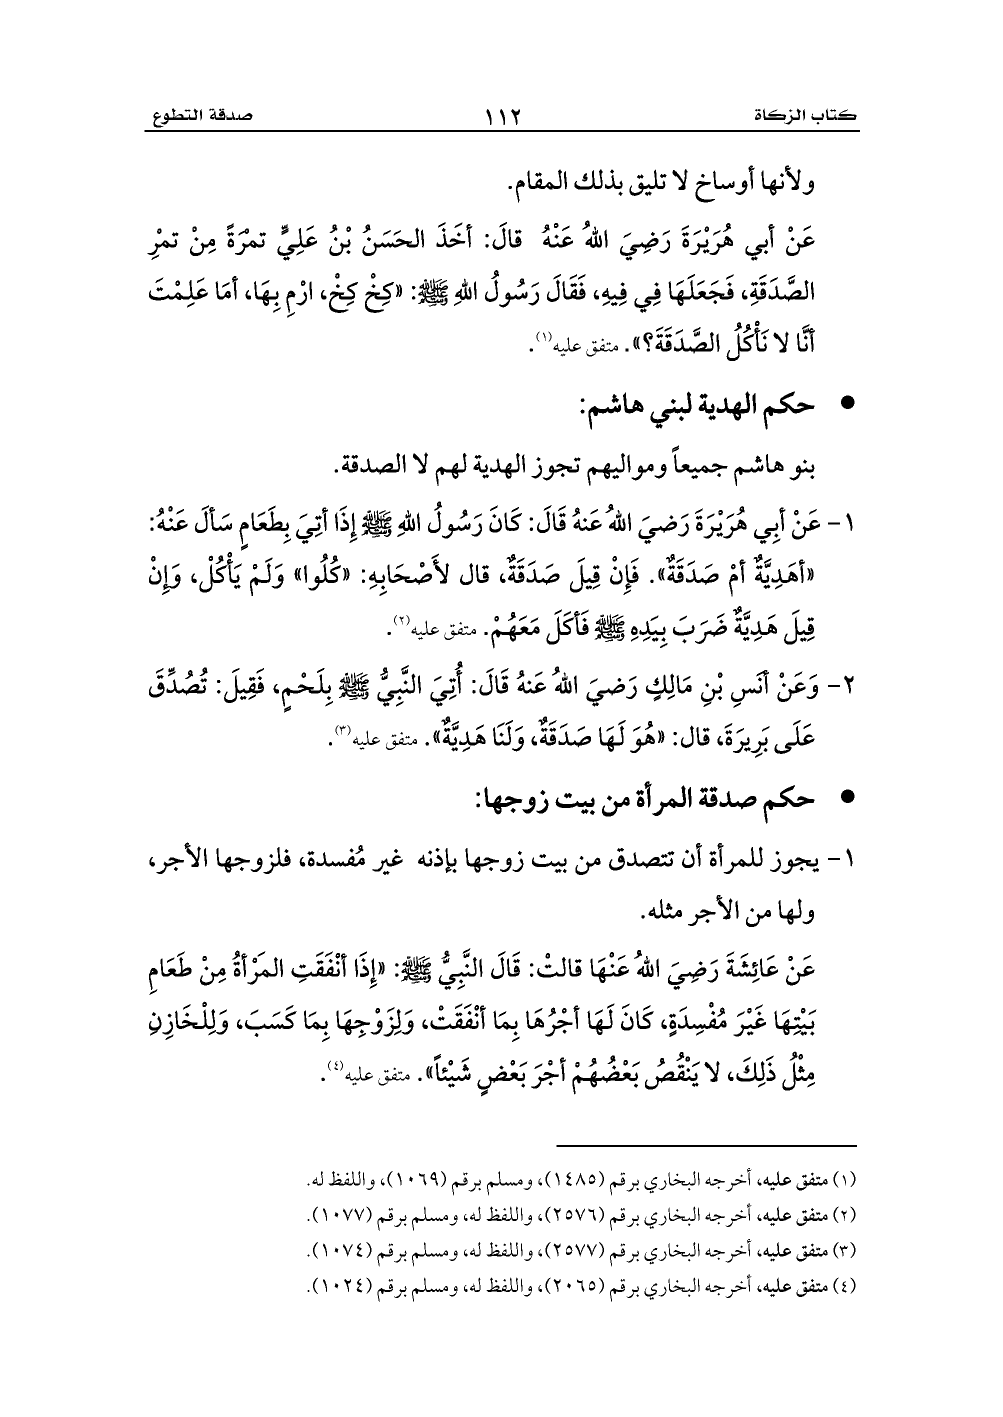 كتاب الزكاة ١١٢ صدقة التطوع
ولأنها أوساخ لا تليق بذلك المقام.
عَنْ أبي هُرَيْرَةَ رَضِيَ اللهُ عَنْهُ قالَ: أخَذَ الحَسَنُ بْنُ عَلِيٍّ تمْرَةً مِنْ تمْرِ
الصَّدَقَةِ، فَجَعَلَهَا فِي فِيهِ، فَقَالَ رَسُولُ اللهِ ﷺ: «كِخْ كِخْ، ارْمِ بِهَا، أمَا عَلِمْتَ
أنَّا لا نَأْكُلُ الصَّدَقَةَ؟». متفق عليه(١).
● حكم الهدية لبني هاشم:
بنو هاشم جميعاً ومواليهم تجوز الهدية لهم لا الصدقة.
١- عَنْ أبِي هُرَيْرَةَ رَضيَ اللهُ عَنهُ قَالَ: كَانَ رَسُولُ اللهِ ﷺ إِذَا أتِيَ بِطَعَامٍ سَألَ عَنْهُ:
«أهَدِيَّةٌ أمْ صَدَقَةٌ». فَإِنْ قِيلَ صَدَقَةٌ، قال لأَصْحَابِهِ: «كُلُوا» وَلَمْ يَأْكُلْ، وَإِنْ
قِيلَ هَدِيَّةٌ ضَرَبَ بِيَدِهِ ﷺ فَأكَلَ مَعَهُمْ. متفق عليه(٢).
٢- وَعَنْ أنَسِ بْنِ مَالِكٍ رَضيَ اللهُ عَنهُ قَالَ: أُتِيَ النَّبِيُّ ﷺ بِلَحْمٍ، فَقِيلَ: تُصُدِّقَ
عَلَى بَرِيرَةَ، قال: «هُوَ لَهَا صَدَقَةٌ، وَلَنَا هَدِيَّةٌ». متفق عليه(٣).
● حكم صدقة المرأة من بيت زوجها:
١- يجوز للمرأة أن تتصدق من بيت زوجها بإذنه غير مُفسدة، فلزوجها الأجر،
ولها من الأجر مثله.
عَنْ عَائِشَةَ رَضِيَ اللهُ عَنْهَا قالتْ: قَالَ النَّبِيُّ ﷺ: «إِذَا أنْفَقَتِ المَرْأةُ مِنْ طَعَامِ
بَيْتِهَا غَيْرَ مُفْسِدَةٍ، كَانَ لَهَا أجْرُهَا بِمَا أنْفَقَتْ، وَلِزَوْجِهَا بِمَا كَسَبَ، وَلِلْخَازِنِ
مِثْلُ ذَلِكَ، لا يَنْقُصُ بَعْضُهُمْ أجْرَ بَعْضٍ شَيْئاً». متفق عليه(٤).
(١) متفق عليه، أخرجه البخاري برقم (١٤٨٥)، ومسلم برقم (١٠٦٩)، واللفظ له.
(٢) متفق عليه، أخرجه البخاري برقم (٢٥٧٦)، واللفظ له، ومسلم برقم (١٠٧٧).
(٣) متفق عليه، أخرجه البخاري برقم (٢٥٧٧)، واللفظ له، ومسلم برقم (١٠٧٤).
(٤) متفق عليه، أخرجه البخاري برقم (٢٠٦٥)، واللفظ له، ومسلم برقم (١٠٢٤).